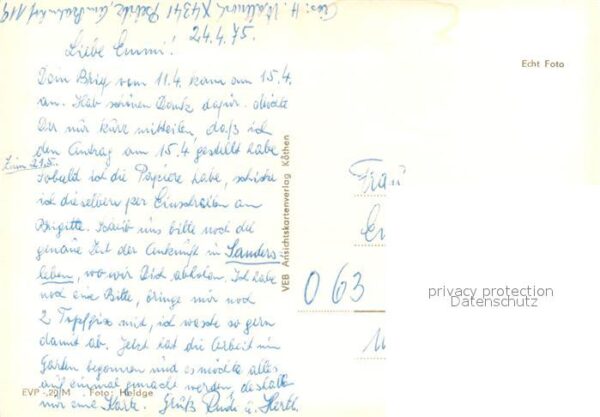 Abs: H. X4341
24.4.75.
Liebe Emmi!
Dein Brief vom 11.4. kam am 15.4.
an. Hab schönen Dank dafür. Möchte
Dir nur kurz mitteilen, daß ich
den Antrag am 15.4 gestellt habe
zum 21.5.
sobald ich die Papiere habe, schicke
ich dieselben per Einschreiben an
Brigitte. Schreib uns bitte noch die
genaue Zeit der Ankunft in Sanders-
leben, wo wir Dich abholen. Ich habe
noch eine Bitte, bringe mir noch
2 Topffix mit, ich wasche so gern
damit ab. Jetzt ist die Arbeit im
Garten begonnen und es möchte alles
auf einmal gemacht werden, deshalb
nur eine Karte. Gruß u. Herth.
EVP -,20/M Foto: Heldge
VEB Ansichtskartenverlag Köthen
Echt Foto
Frau
063
privacy protection
Datenschutz